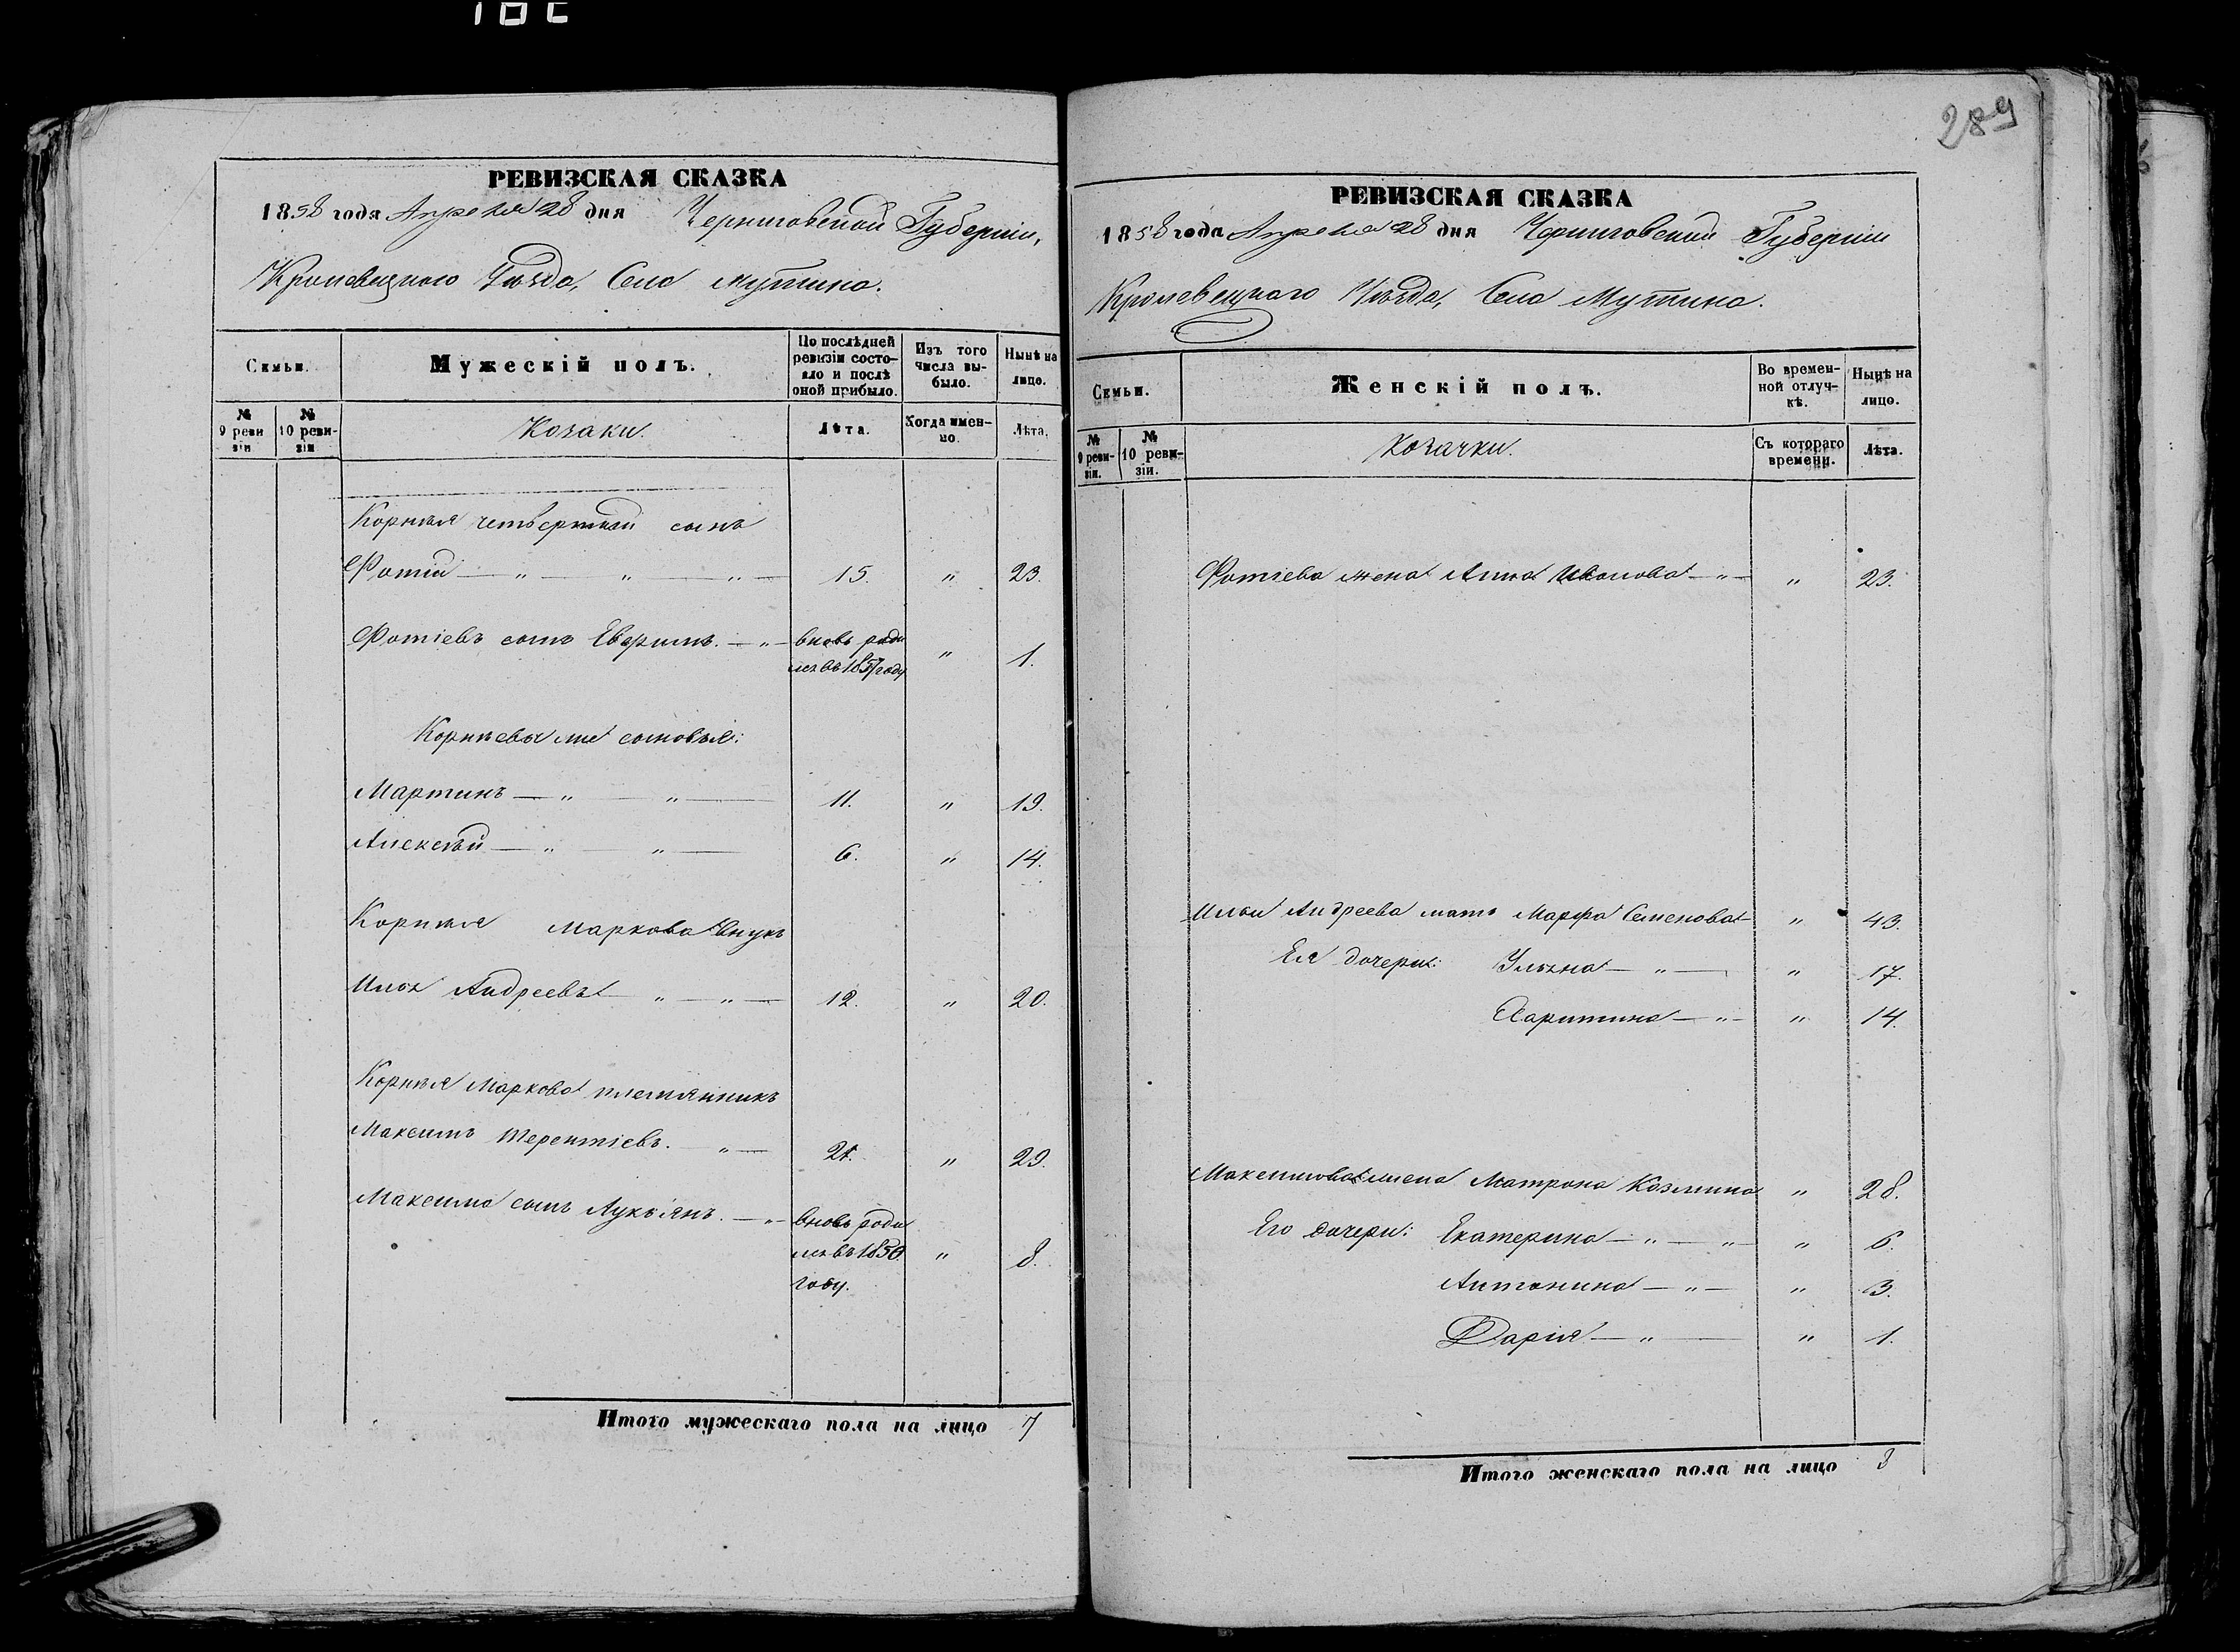 289
РЕВИЗСКАЯ СКАЗКА
1858 года Апреля 28 дня Черниговской Губерніи,
Кролевецкаго Уѣзда, Села Мутина.
Семьи.
Мужескій полъ.
По послѣдней ревизіи состояло и послѣ оной прибыло.
Изъ того числа выбыло.
Нынѣ на лицо.
№ 9 ревизіи
№ 10 ревизіи
Козаки.
Лѣта.
Когда именно.
Лѣта.
Корнѣя четвертый сынъ
Фотій — " — " — " — 15. " 23.
Фотіевъ сынъ — " — вновь родился въ 1857 году " 1.
Корнѣевы же сыновья:
Мартинъ — " — " — 11. " 19.
Алексѣй — " — " — 6. " 14.
Корнѣя Маркова внукъ
Илья Андреевъ — " — " — 12. " 20.
Корнѣя Маркова племянникъ
Максимъ Терентіевъ. — " — 21. " 29.
Максима сынъ Лукьянъ. — " — вновь родился въ 1850 году. " 8.
Итого мужескаго пола на лицо 7
РЕВИЗСКАЯ СКАЗКА
1858 года Апреля 28 дня Черниговской Губерніи
Кролевецкаго Уѣзда, Села Мутина.
Семьи.
Женскій полъ.
Во временной отлучкѣ.
Нынѣ на лицо.
№ 9 ревизіи.
№ 10 ревизіи.
Козачки.
Съ котораго времени.
Лѣта.
Фотіева жена Анна Иванова — " — " 23.
Ильи Андреева мать Марфа Семенова — " 43.
Ея дочери: Ульяна — " — " 17.
Харитина — " — " 14.
Максимова жена Матрона Козмина " 28.
Его дочери: Екатерина — " — " — " 6.
Антонина — " — " 3.
Дарія — " — " 1.
Итого женскаго пола на лицо 8